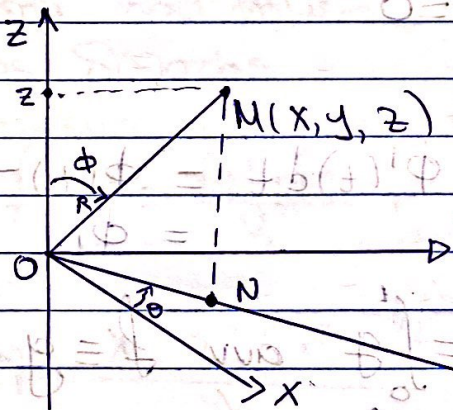 Z
z
M(x, y, z)
ϕ
R
O
N
θ
x